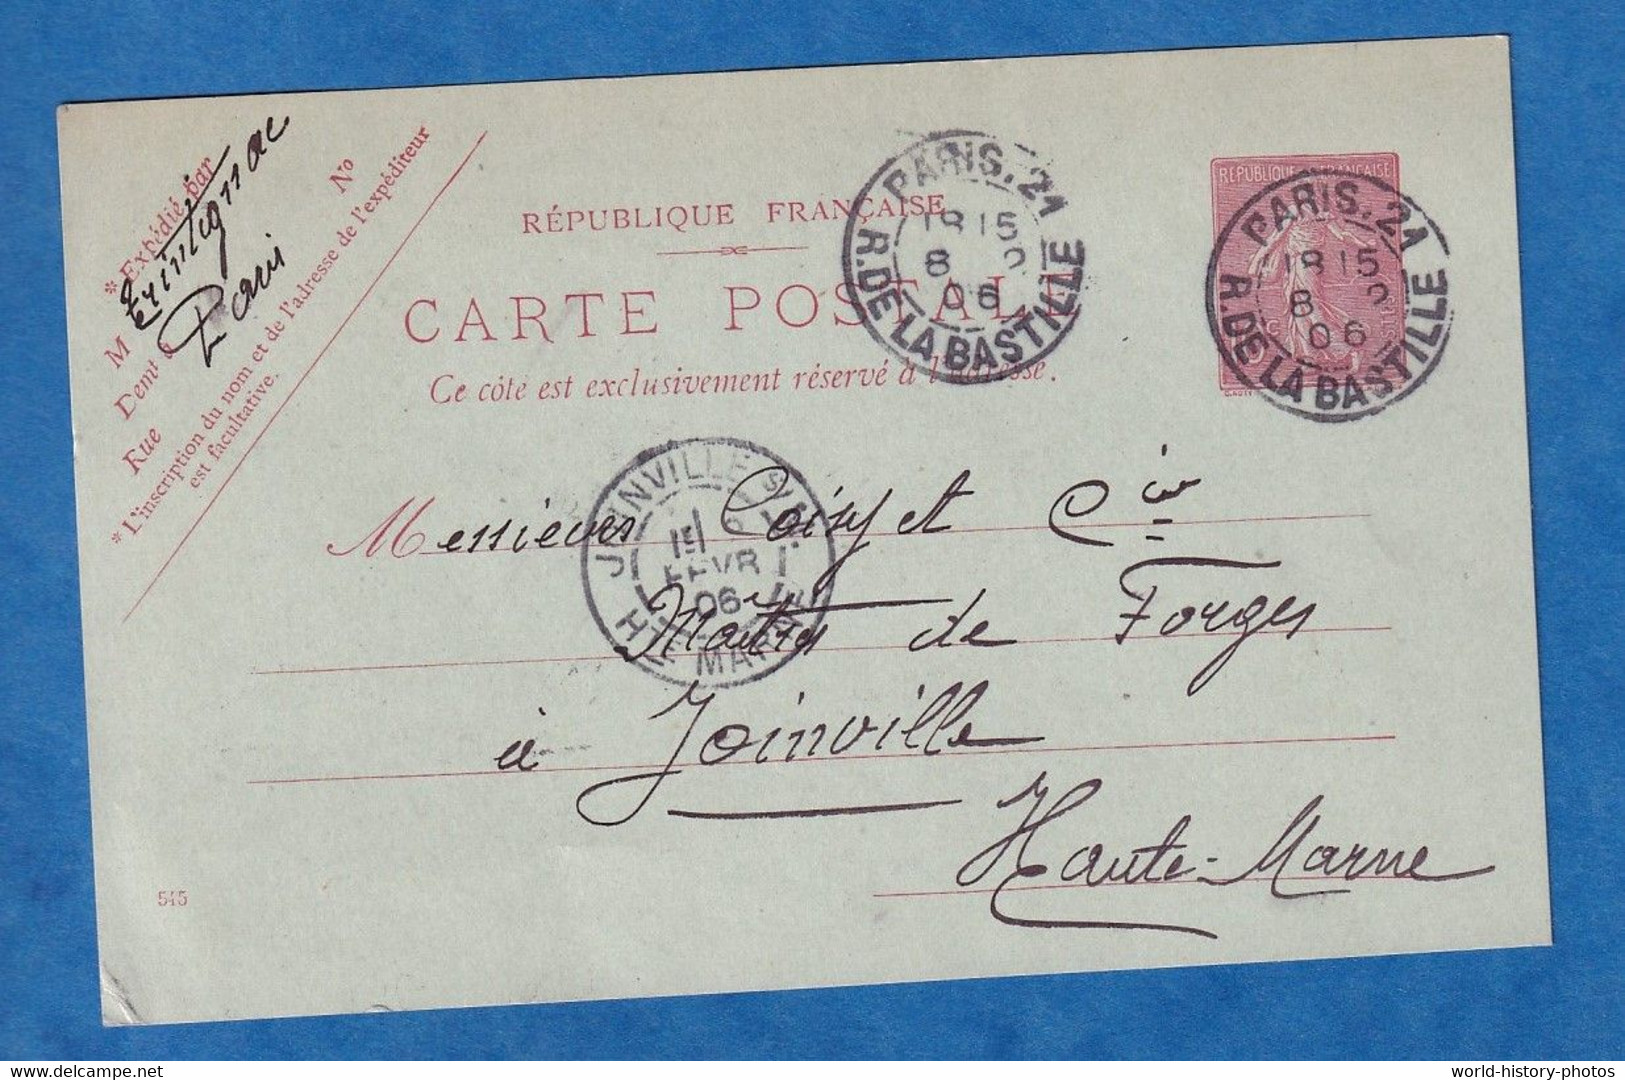 * Expédié par
M Erintignac
Demt à Paris
Rue
No
* L'inscription du nom et de l'adresse de l'expéditeur
est facultative.
RÉPUBLIQUE FRANÇAISE
CARTE POSTALE
Ce côté est exclusivement réservé à l'adresse.
PARIS. 21
18 15
8 2
06
R. DE LA BASTILLE
RÉPUBLIQUE FRANÇAISE
PARIS. 21
18 15
8 2
06
R. DE LA BASTILLE
JOINVILLE S/
FEVR
06
HTE MARNE
Messieurs Coisy et Cie
Maîtres de Forges
à Joinville
Haute-Marne
545
world-history-photos